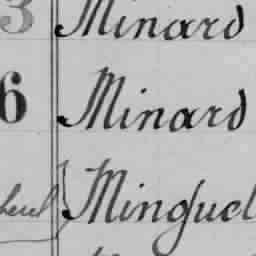 3 Minard
6 Minard
Minguel